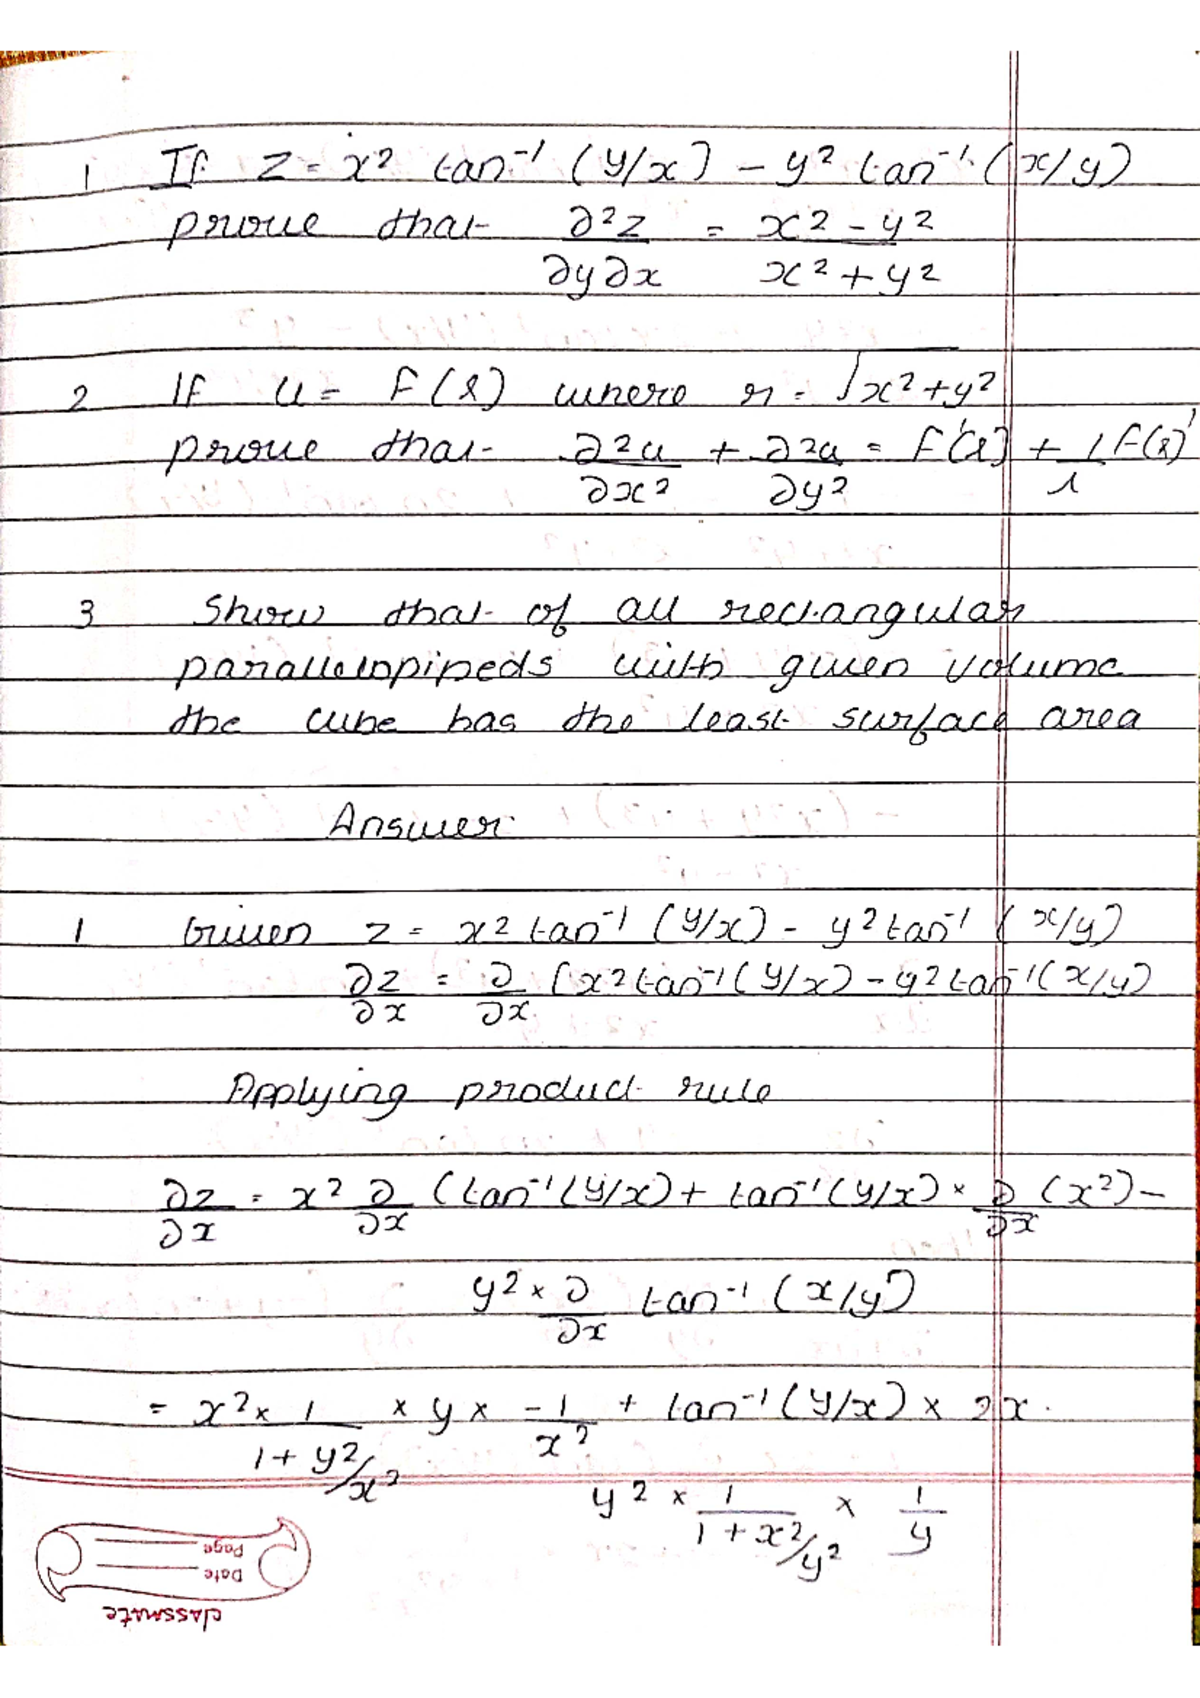 1 If z = x² tan⁻¹ (y/x) - y² tan⁻¹ (x/y)
prove that ∂²z/∂y∂x = x² - y²/x² + y²
2 If u = F(r) where r = √x² + y²
prove that ∂²u/∂x² + ∂²u/∂y² = F'(r) + 1/r F(r)'
3 Show that of all rectangular
parallelopipeds with given volume
the cube has the least surface area
Answer
1 Given z = x² tan⁻¹ (y/x) - y² tan⁻¹ (x/y)
∂z/∂x = ∂/∂x [x² tan⁻¹ (y/x) - y² tan⁻¹ (x/y)
Applying product rule
∂z/∂x = x² ∂/∂x (tan⁻¹ (y/x) + tan⁻¹ (y/x) × ∂/∂x (x²) -
y² × ∂/∂x tan⁻¹ (x/y)
= x² × 1/1 + y²/x² × y × -1/x² + tan⁻¹ (y/x) × 2x.
y² × 1/1 + x²/y² × 1/y
classmate
Date
Page